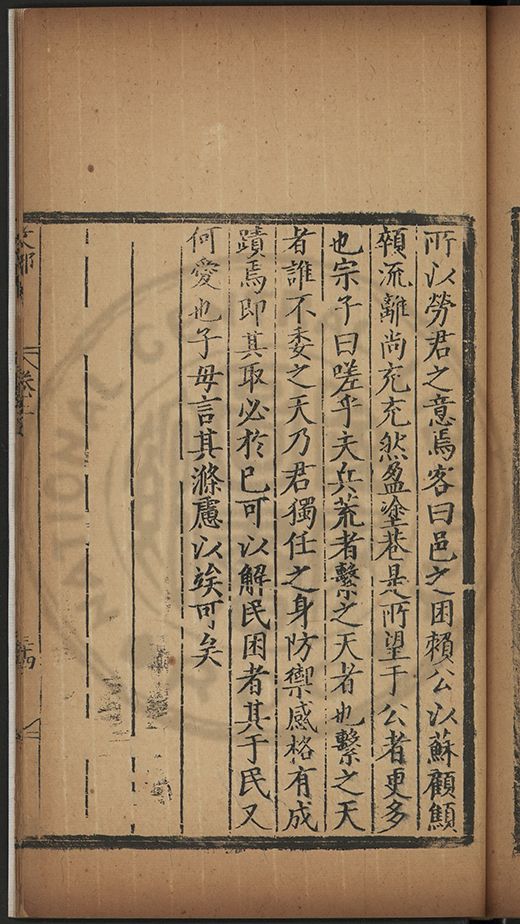 所以勞君之意焉客曰邑之困賴公以蘇顧顛
顇流離尚充充然盈塗巷是所望于公者更多
也宗子曰嗟乎夫兵荒者繫之天者也繫之天
者誰不委之天乃君獨任之身防禦感格有成
蹟焉即其取必於已可以解民困者其于民又
何愛也子毋言其滌慮以竢可矣